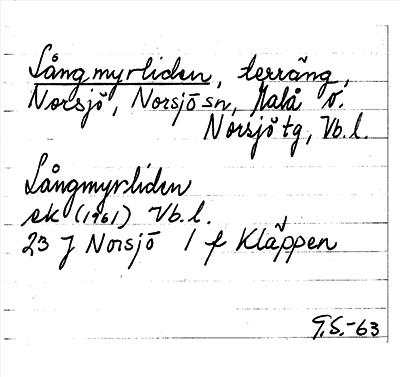 Långmyrliden, terräng,
Norsjö, Norsjö sn, Malå o.
Norsjö tg, Vb. l.
Långmyrliden
ek (1961) Vb. l.
23 J Norsjö 1 f Kläppen
G.S.-63